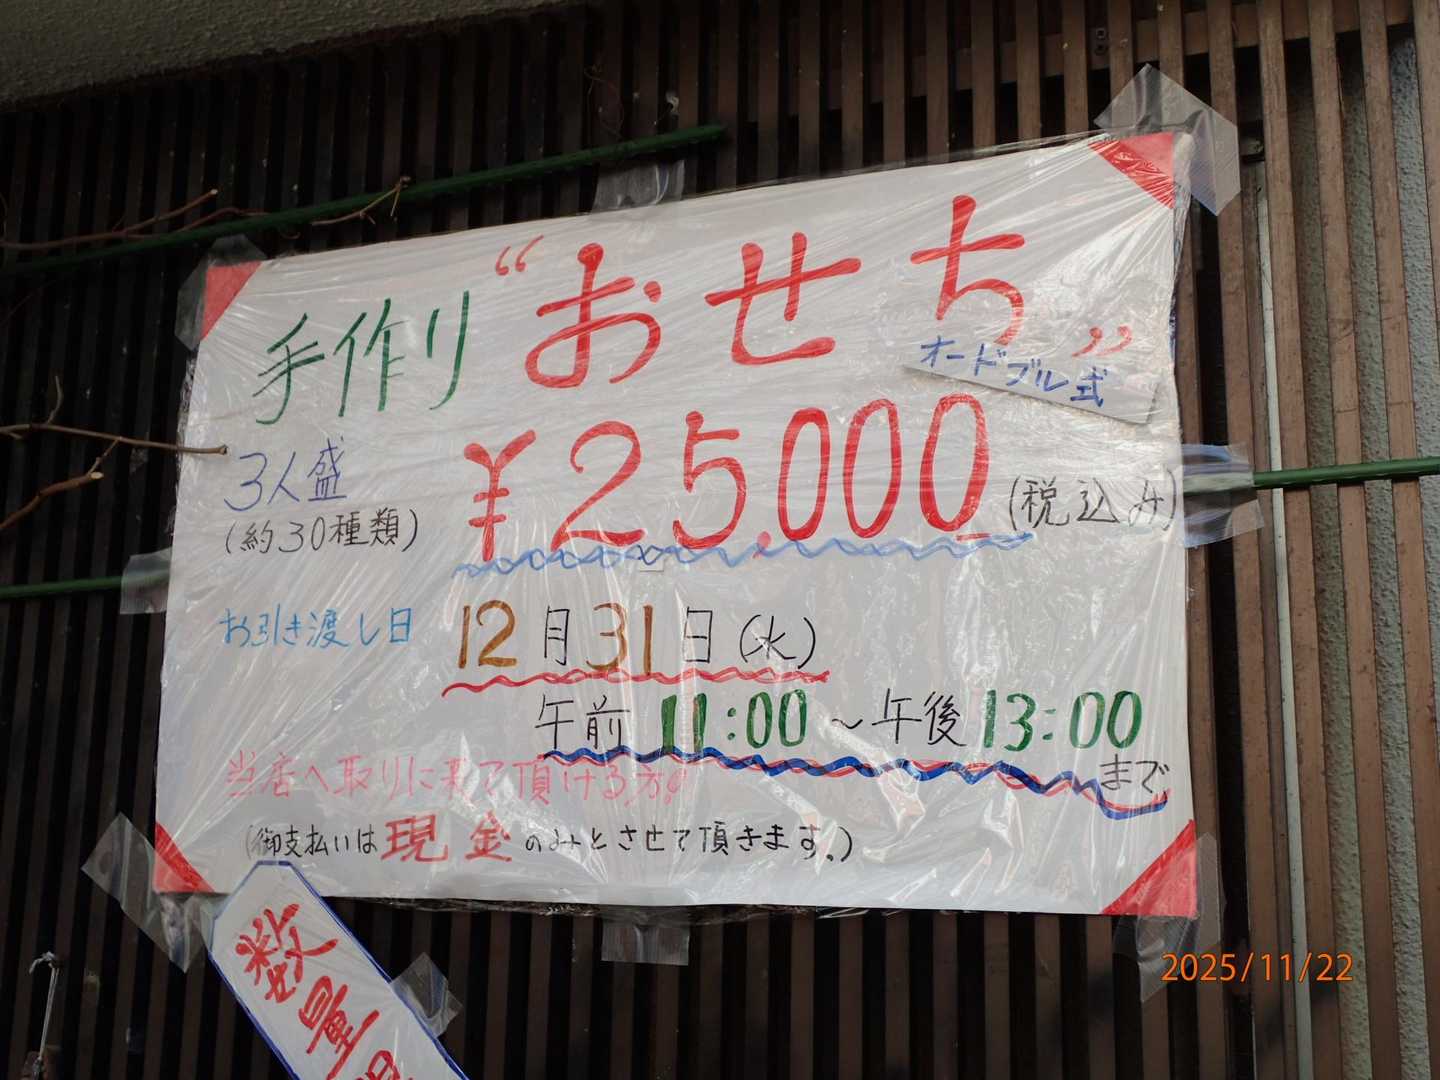 手作り“おせち”
オードブル式
3人盛
(約30種類)
¥25,000(税込み)
お引き渡し日 12月31日(水)
午前11:00~午後13:00まで
当店へ取りに来て頂ける方。
(御支払いは現金のみとさせて頂きます。)
数量限
2025/11/22